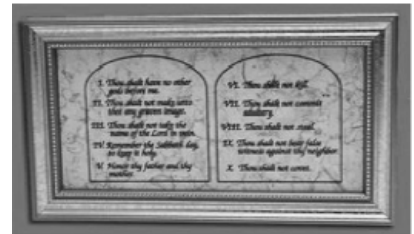 I. Thou shalt have no other
gods before me.
II. Thou shalt not make unto
thee any graven image.
III. Thou shalt not take the
name of the Lord in vain.
IV. Remember the Sabbath day,
to keep it holy.
V. Honor thy father and thy
mother.
VI. Thou shalt not kill.
VII. Thou shalt not commit
adultery.
VIII. Thou shalt not steal.
IX. Thou shalt not bear false
witness against thy neighbor.
X. Thou shalt not covet.